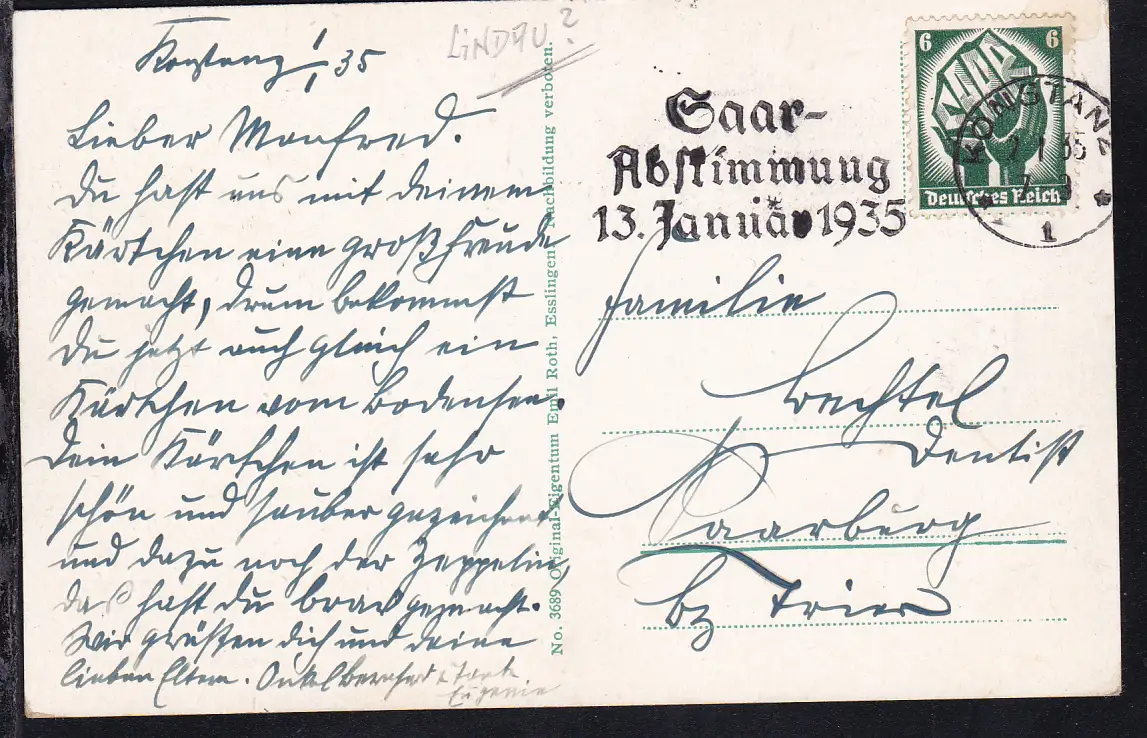 Konstanz 1/1 35
LINDAU?
Lieber Manfred.
Du hast uns mit deinem
Kärtchen eine große Freude
gemacht, drum bekommst
Du jetzt auch gleich ein
Kärtchen vom Bodensee.
Dein Kärtchen ist sehr
schön und sauber gezeichnet
und dazu noch der Zeppelin,
das hast Du brav gemacht.
Wir grüßen dich und deine
lieben Eltern. Onkel Bernhard u. Tante
Eugenie
No. 3689 Original-Eigentum Emil Roth, Esslingen Nachbildung verboten.
Saar-
Abstimmung
13. Januar 1935
6 6
Deutsches Reich
KONSTANZ
1
Familie
Bechtel
Dentist
Saarburg
bz Trier